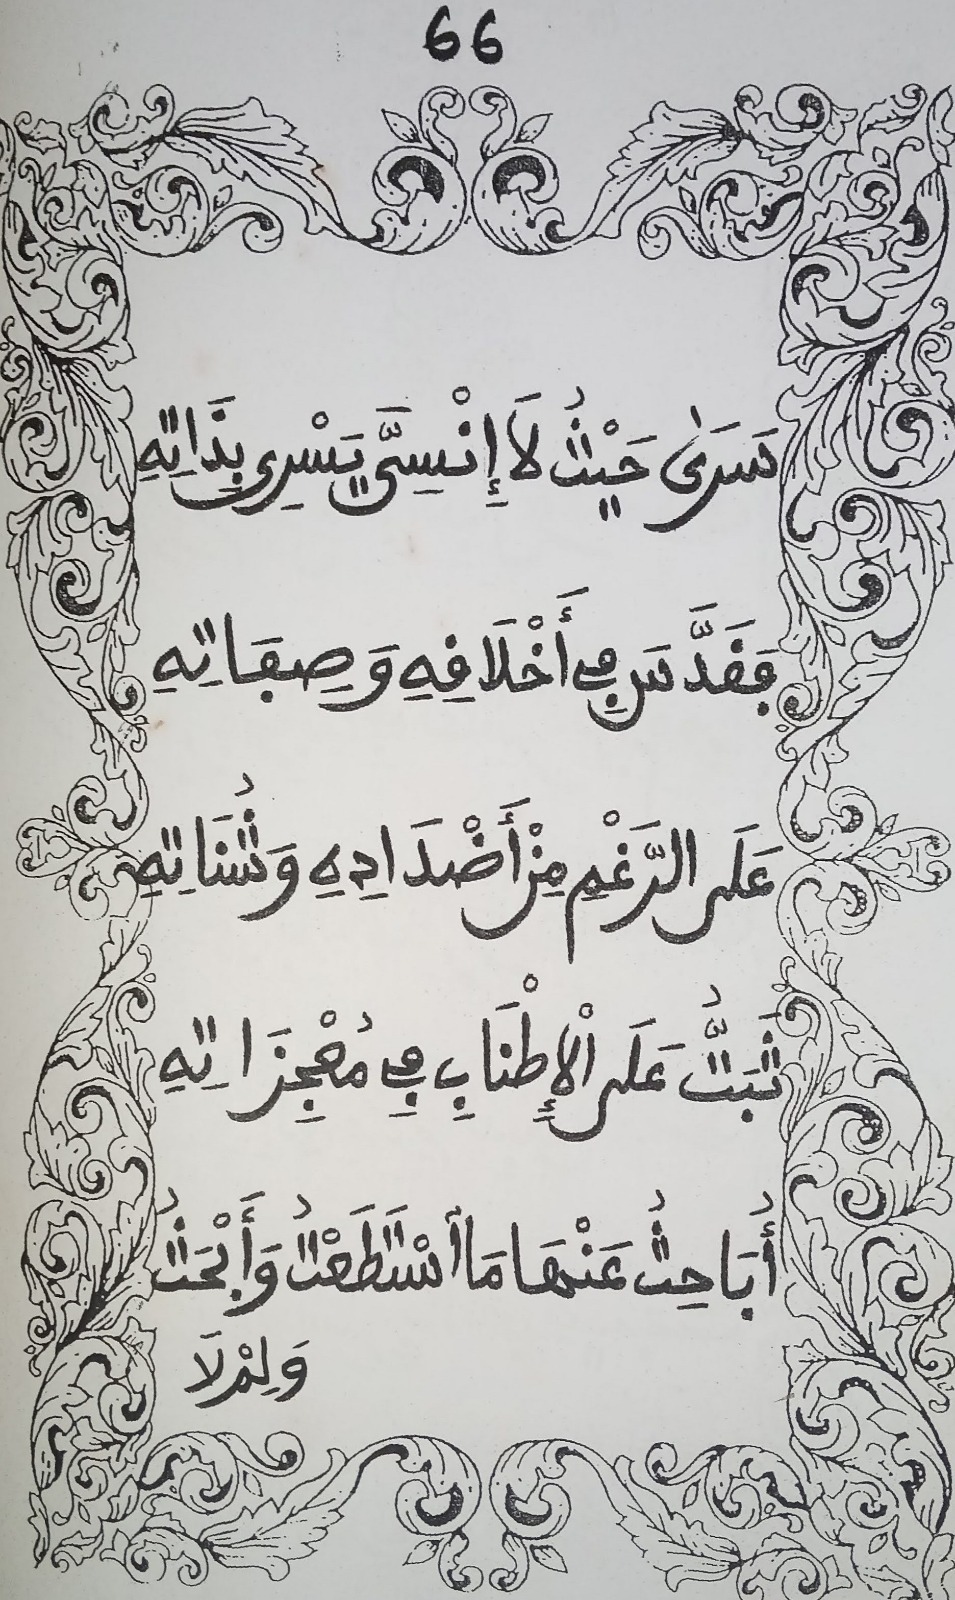 66
سَرَىٰ حَيْثُ لَا إِنْسِيَّ يَسْرِي بِذَاتِهِ
فَقَدَّسَ فِي أَخْلَاقِهِ وَصِفَاتِهِ
عَلَى الرَّغْمِ مِنْ أَضْدَادِهِ وَشُنَاتِهِ
ثَبَتُّ عَلَى الْإِطْنَابِ فِي مُعْجِزَاتِهِ
أُبَاحِثُ عَنْهَا مَا اسْتَطَعْتُ وَأَبْحَثُ
وَلِمْ لَا